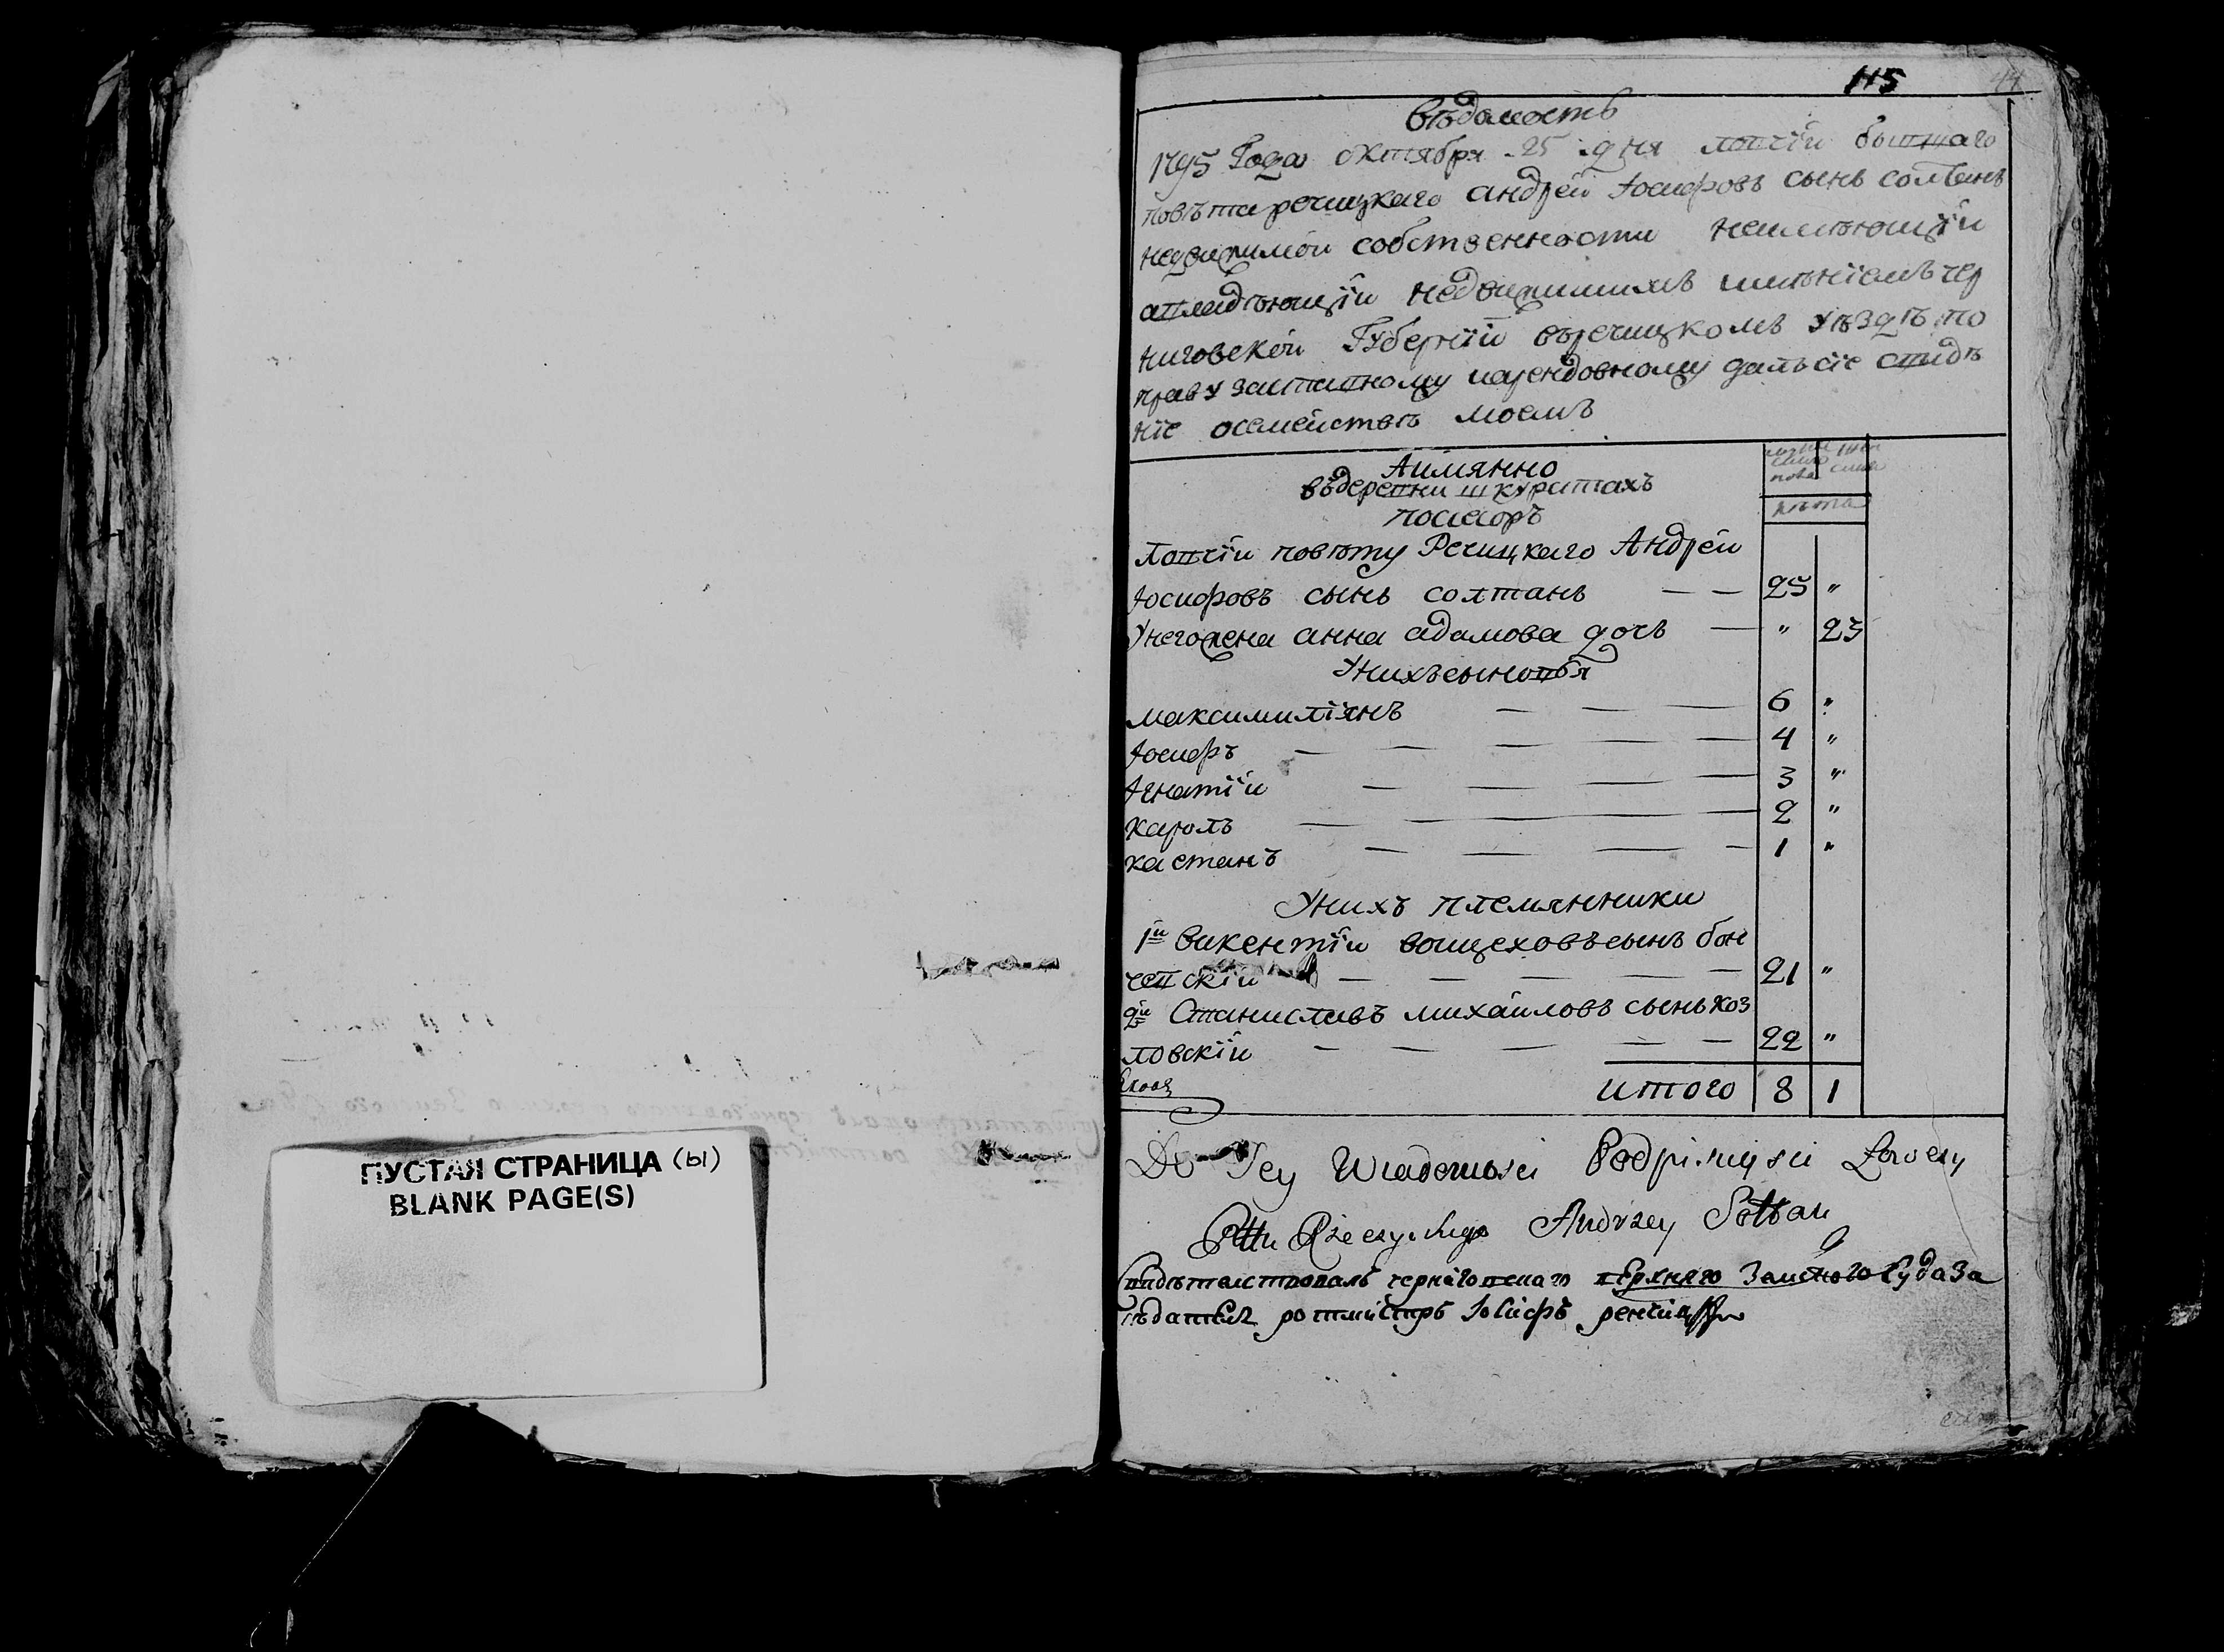 ПУСТАЯ СТРАНИЦА (ы)
BLANK PAGE(S)
115
44
Вѣдомость
1795 Года октября 25 дня ловчiй бывшаго
повѣта речицкаго андрей Иосифовъ сынъ солтанъ
недвижимой собственности неимѣющiй
авладѣющiй недвижимимъ имѣнiемъ чер
ниговской Губернiй върѣчицкомъ уѣздѣ по
праву заставному иарендовному далъ сiе свидѣ
нiе осемействѣ моемъ
Аимянно
въдеревни шкуратахъ
посесоръ
лѣта
Ловчiй повѣту Речицкаго Андрей
Иосифовъ сынъ солтанъ — — 25 "
Унегожена анна адамова дочь — " 23
Унихъсыновья
максимилiянъ — — — 6 "
Иосифъ — — — — — 4 "
Игнатiй — — — — 3 "
кароль — — — — — 2 "
каетанъ — — — — 1 "
Унихъ племянники
1й викентiй воицеховъсынъ бон
чевскiй — — — — — 21 "
2й Станиславъ михайловъ сынъ коз
ловскiй — — — — — 22 "
итого 8 1
Do Tey Wiadomosci Podpisuję się Łowczy
Pttu Rzeczyckiego Andrzey Sołtan
Свидѣтелствовалъ чернiговскаго верхняго Земского суда За
сѣдатель ротмистръ Iосифъ